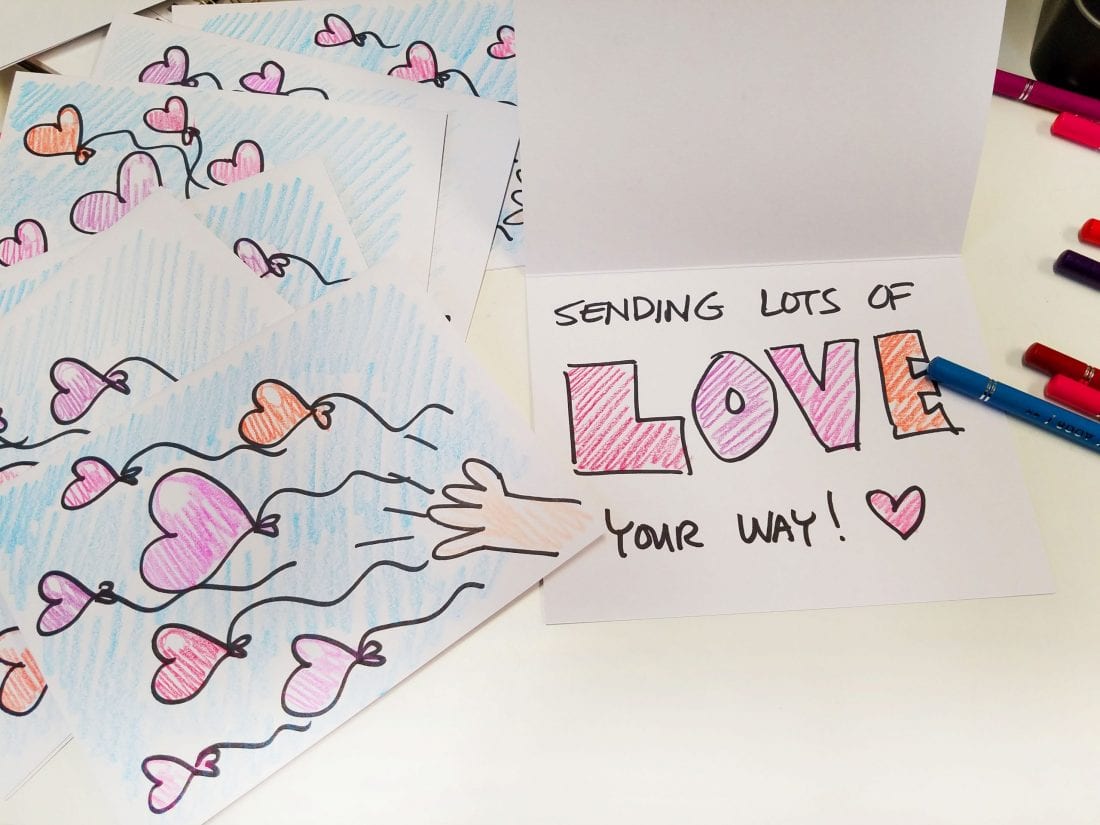 SENDING LOTS OF
LOVE
YOUR WAY!